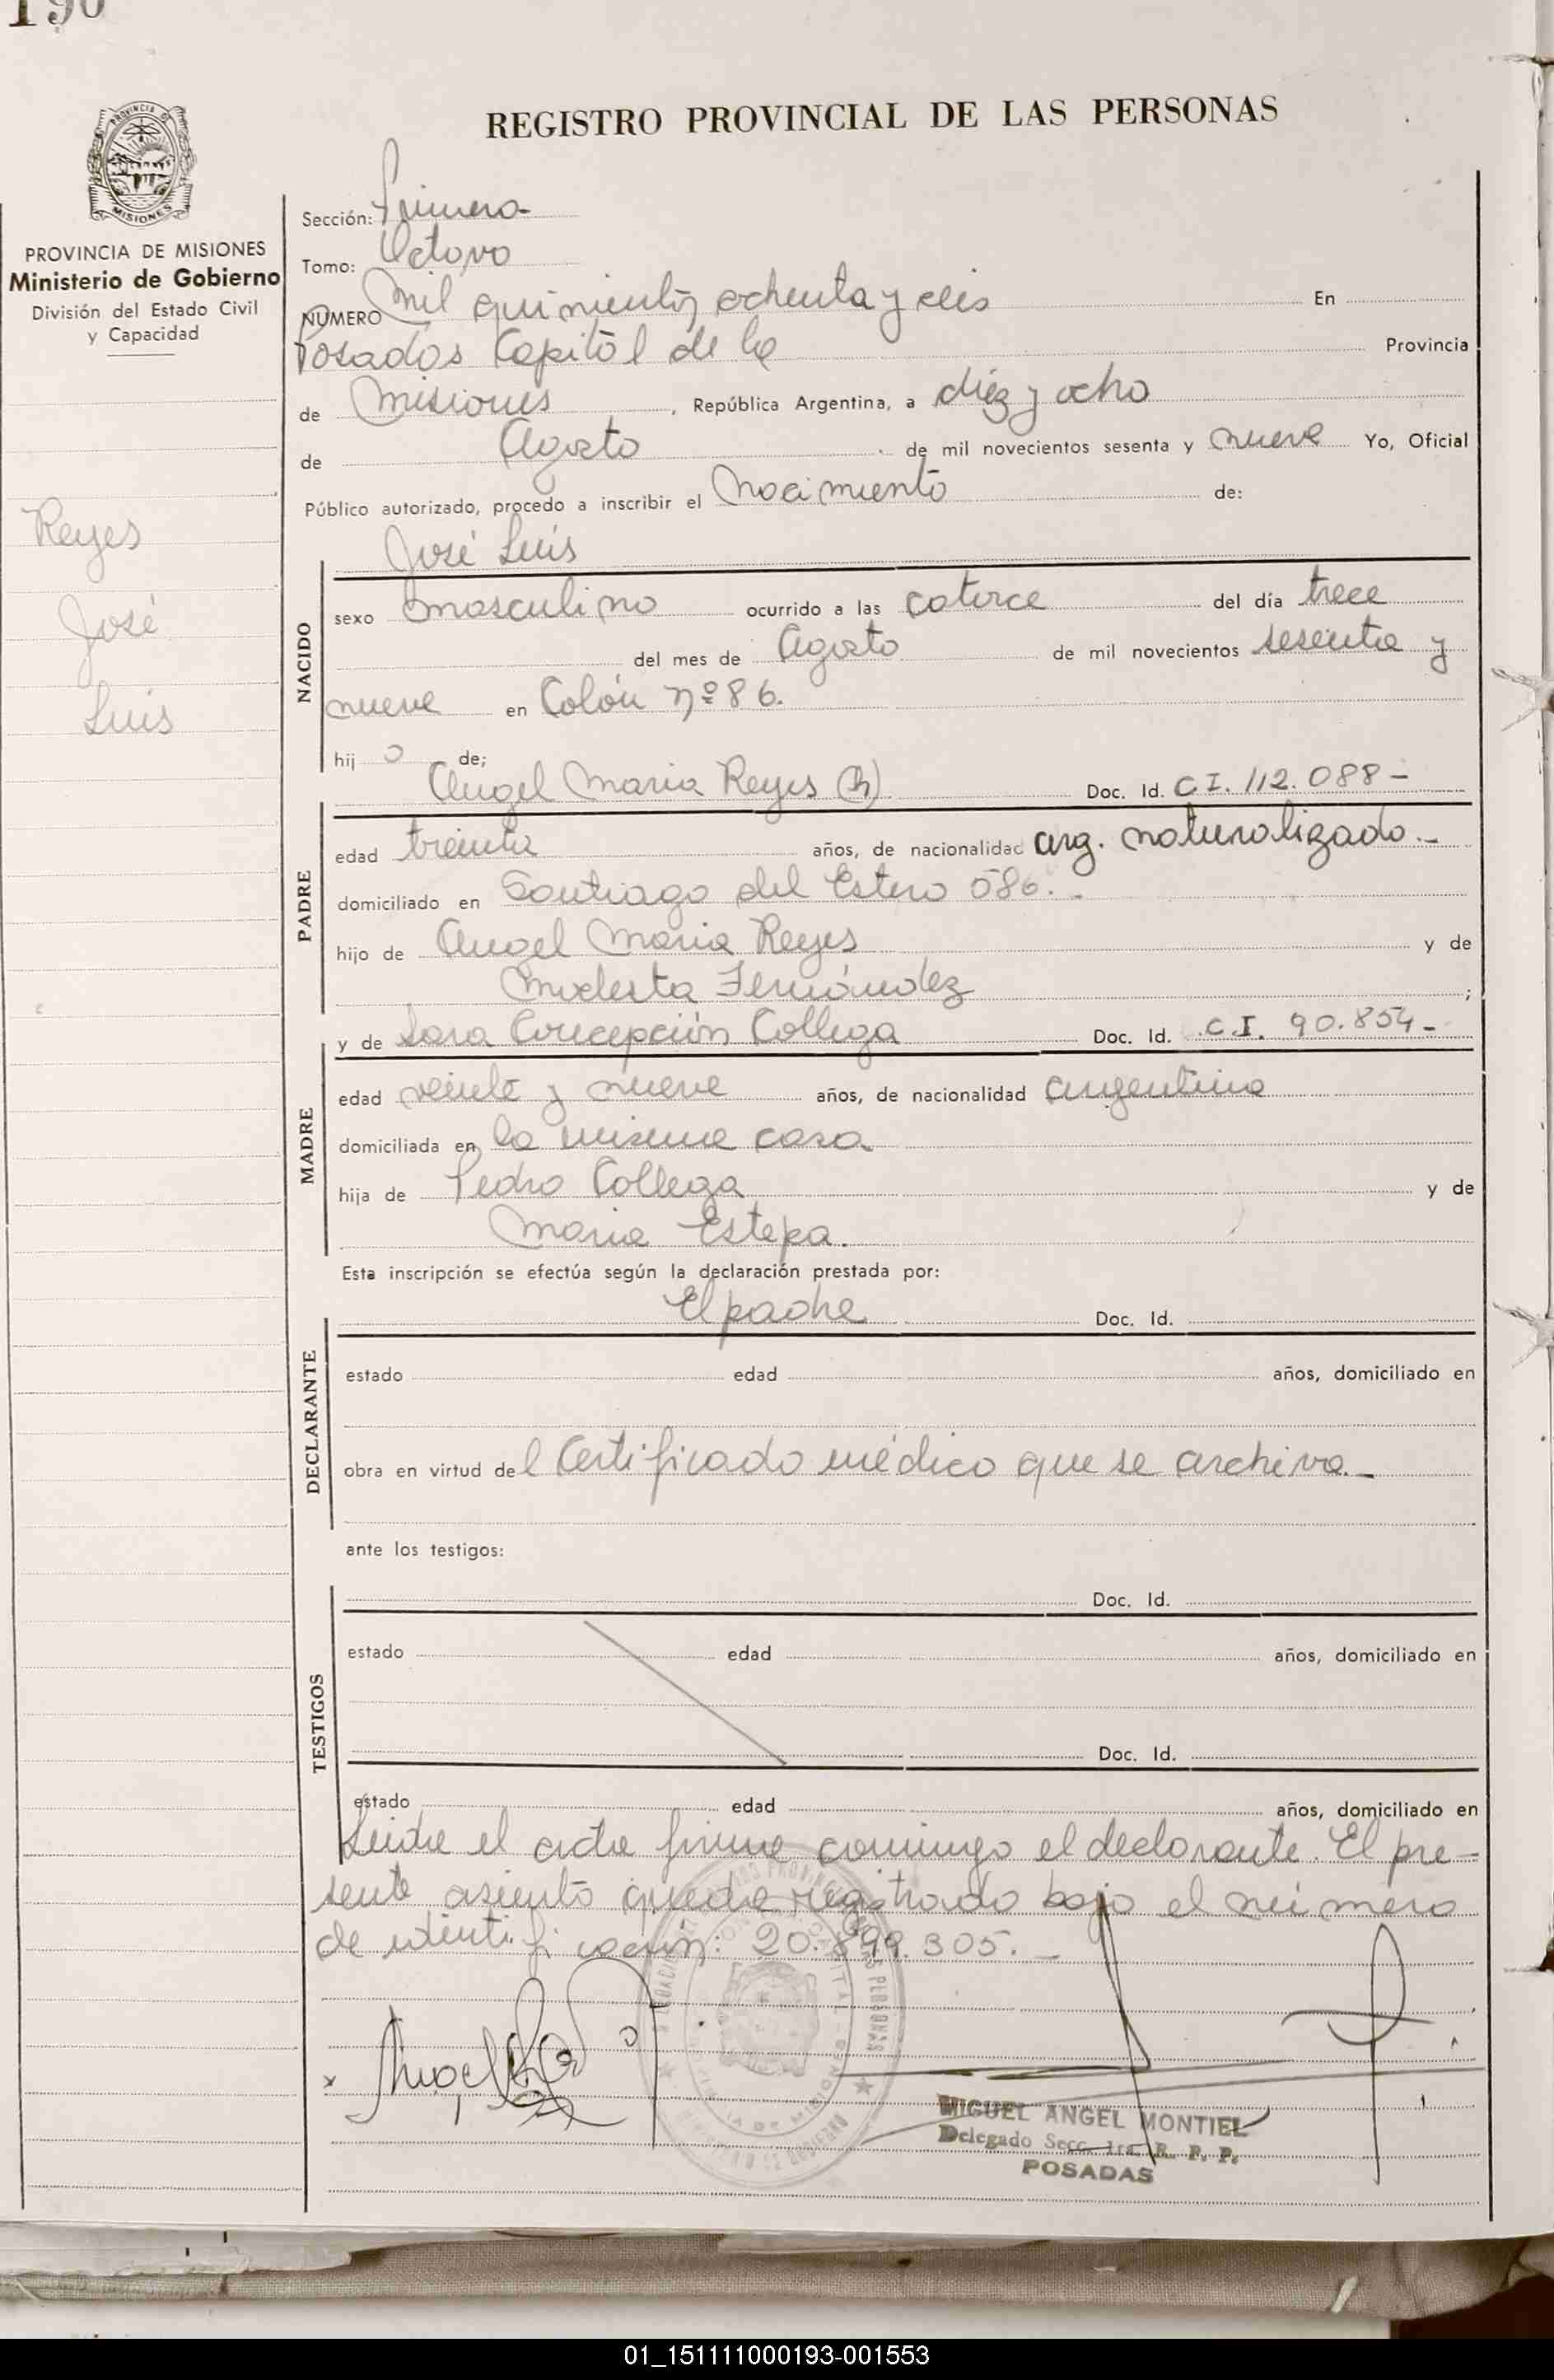 190
REGISTRO PROVINCIAL DE LAS PERSONAS
MISIONES
PROVINCIA DE MISIONES
Ministerio de Gobierno
División del Estado Civil
y Capacidad
Reyes
José
Luis
Sección: Primera
Tomo: Octavo
NÚMERO Mil quinientos ochenta y seis En
Posadas Capital de la Provincia
de Misiones, República Argentina, a diez y ocho
de Agosto de mil novecientos sesenta y nueve Yo, Oficial
Público autorizado, procedo a inscribir el Nacimiento de:
José Luis
NACIDO
sexo masculino ocurrido a las catorce del día trece
del mes de Agosto de mil novecientos sesenta y
nueve en Colón nº 86.
hijo de;
Angel Maria Reyes (h) Doc. Id. C.I. 112.088-
PADRE
edad treinta años, de nacionalidad arg. naturalizado.-
domiciliado en Santiago del Estero 586.-
hijo de Angel Maria Reyes y de
Modesta Fernández;
y de Sara Concepción Collega Doc. Id. C.I. 90.854-
MADRE
edad veinte y nueve años, de nacionalidad argentina
domiciliada en la misma casa
hija de Pedro Collega y de
Maria Estepa.
Esta inscripción se efectúa según la declaración prestada por:
El padre Doc. Id.
DECLARANTE
estado edad años, domiciliado en
obra en virtud del Certificado médico que se archiva.-
ante los testigos:
Doc. Id.
TESTIGOS
estado edad años, domiciliado en
Doc. Id.
estado edad años, domiciliado en
Leida el acta firma conmigo el declarante. El pre-
sente asiento queda registrado bajo el número
de identificación: 20.899.305.-
MIGUEL ANGEL MONTIEL
Delegado Secc. 1ra. R. P. P.
POSADAS
01_151111000193-001553